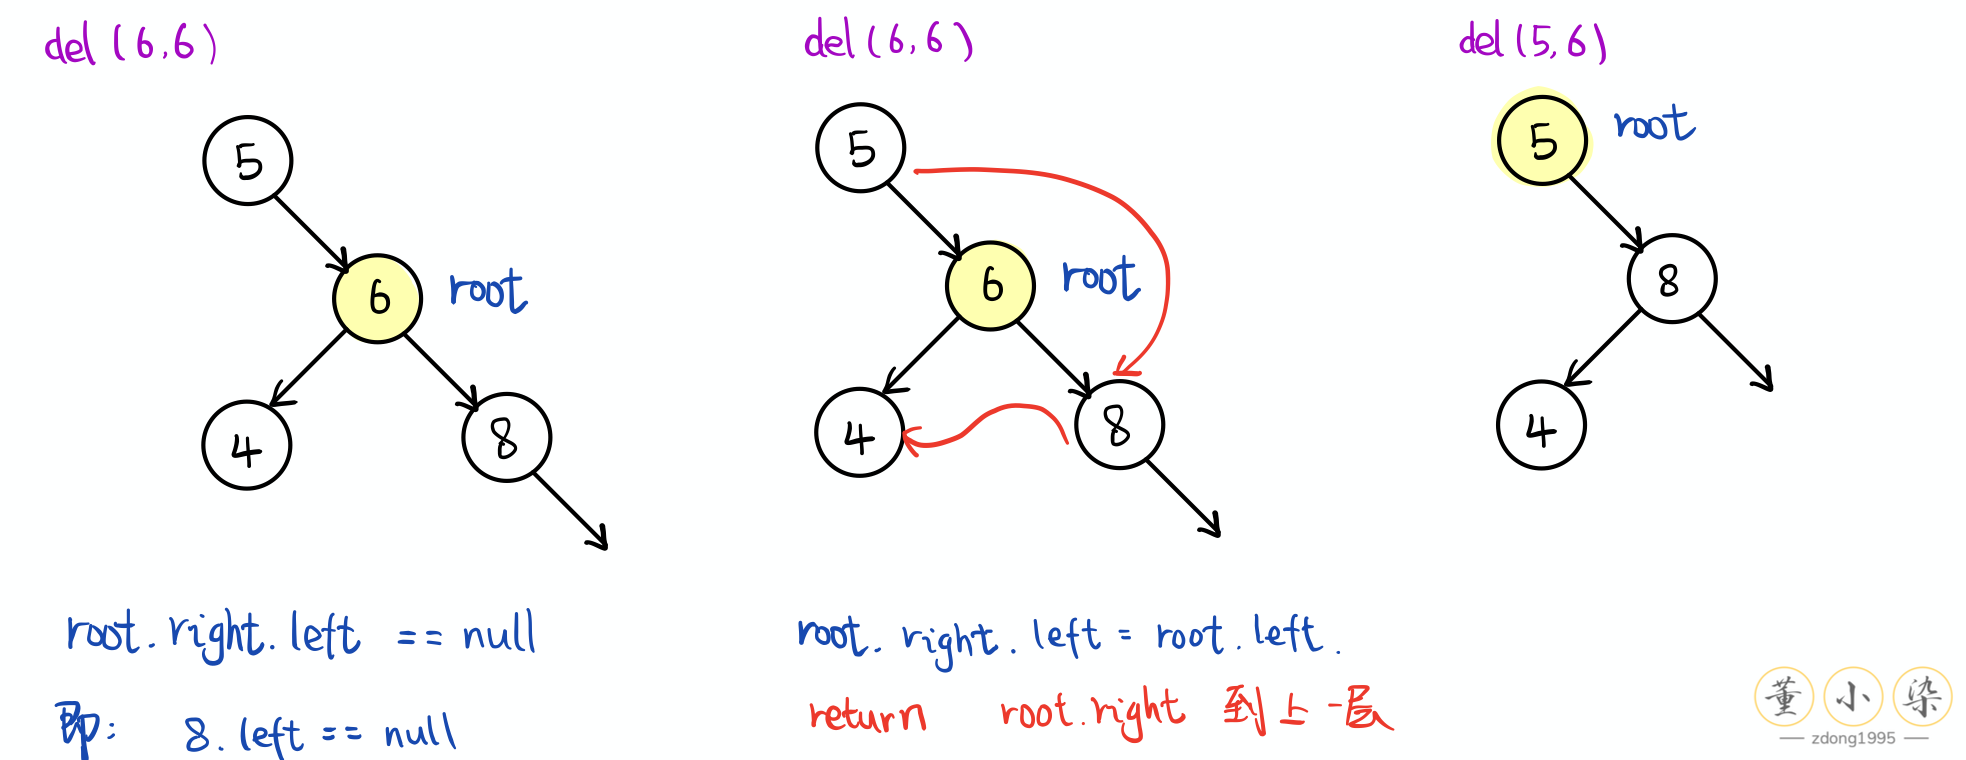 del (6,6)
5
6 root
4
8
root.right.left == null
即: 8.left == null
del (6,6)
5
6 root
4
8
root.right.left = root.left.
return root.right 到上一层
del (5,6)
5 root
8
4
董小染
zdong1995